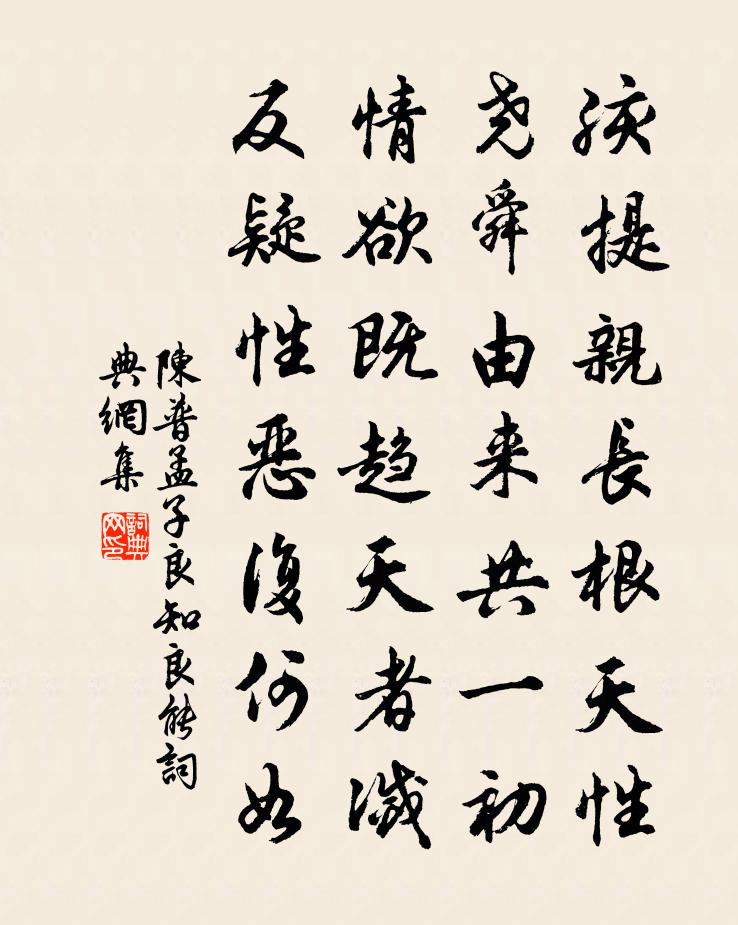 孩提親長根天性
堯舜由来共一初
情欲既趋天者滅
反疑性惡復何如
陳普孟子良知良能詞
典網集
詞典網印